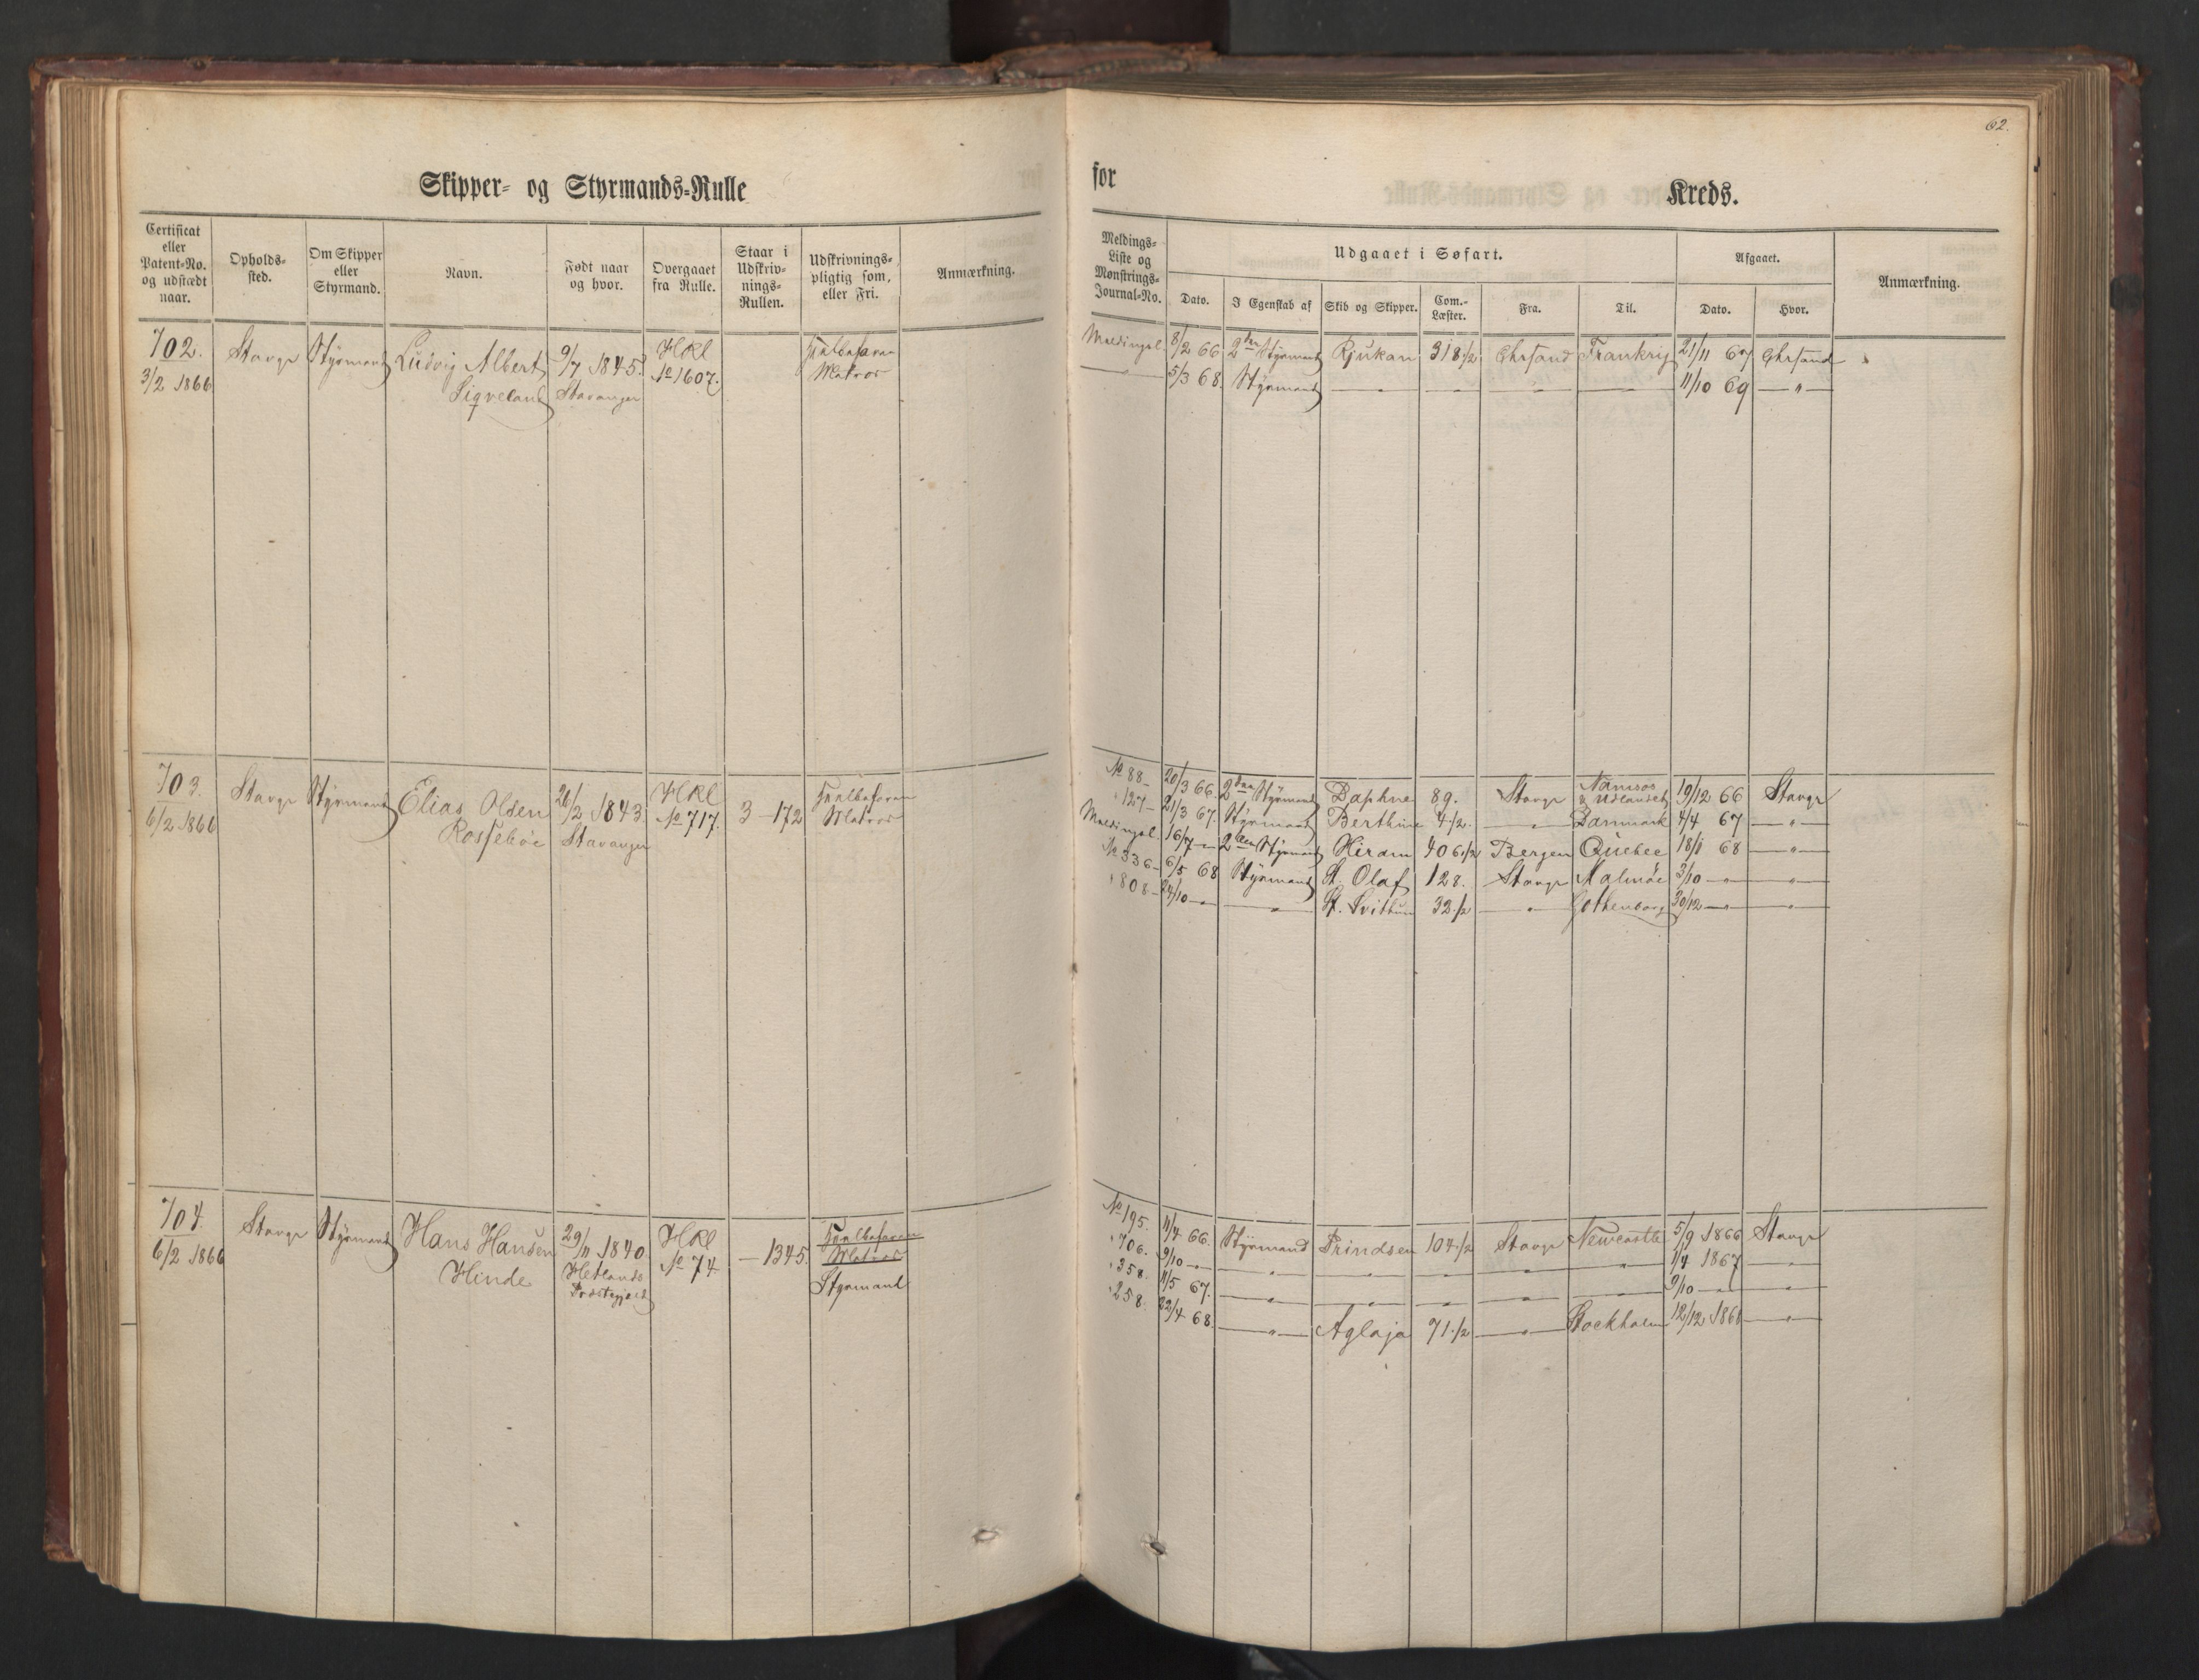 62.
Skipper- og Styrmands-Rulle
for
Kreds.
Certificat eller Patent-No. og udstædt naar.
Opholds-sted.
Om Skipper eller Styrmand.
Navn.
Født naar og hvor.
Overgaaet fra Rulle.
Staar i Udskriv-nings-Rullen.
Udskrivnings-pligtig som, eller Fri.
Anmærkning.
Meldings-Liste og Mønstrings-Journal-No.
Udgaaet i Søfart.
Dato.
I Egenskab af
Skib og Skipper.
Com.-Læster.
Fra.
Til.
Afgaaet.
Dato.
Hvor.
Anmærkning.
702. Stavgr Styrmand Ludvig Albert 9/7 1845. HRl
3/2 1866 Sigveland Stavanger No 1607. Matros
Meldingsl. 8/2 66 2den Styrmand Rjukan 318 1/2 Chrsand Frankrig 21/11 67 Chrsand
— 5/3 68. Styrmand — — — — 11/10 69 — " —
703. Stavgr Styrmand Elias Olsen 26/2 1843. HRl 3 — 172
6/2 1866 Rossebøe Stavanger No 717. Matros
No 88 — 20/3 66. 2den Styrmand Daphne 89. Stavgr Namsos & Udlandet 19/12 66 Stavgr
" 127 — 21/3 67. Styrmand Berthine 4 1/2. — " — Danmark 4/4 67 — " —
Meldingsl. 16/7 — " 2den Styrmand Hiram 406 1/2 Bergen Quebec 18/1 68 — " —
No 336 — 6/5 68 Styrmand St. Olaf 128. Stavgr Malmöe 3/10 — " — — " —
" 808 — 24/10 — " — " — St. Svithun 32 1/2 — " — Gothenborg 30/12 — " — — " —
704. Stavgr Styrmand Hans Hansen 29/11 1840. HRl — 1345.
6/2 1866 Hinde Hetlands Præstegjeld No 74. Matros
Styrmand
No 195. 11/4 66. Styrmand Prindsen 104 1/2 Stavgr Newcastle 5/9 1866 Stavgr
" 706. 9/10 — " — " — — " — — " — — " — — " — 1/4 1867 — " —
" 358. 11/5 67. — " — — " — — " — — " — — " — 9/10 — " — — " —
" 258. 22/4 68. — " — Aglaja 71 1/2 — " — Stockholm 12/12 1868 — " —